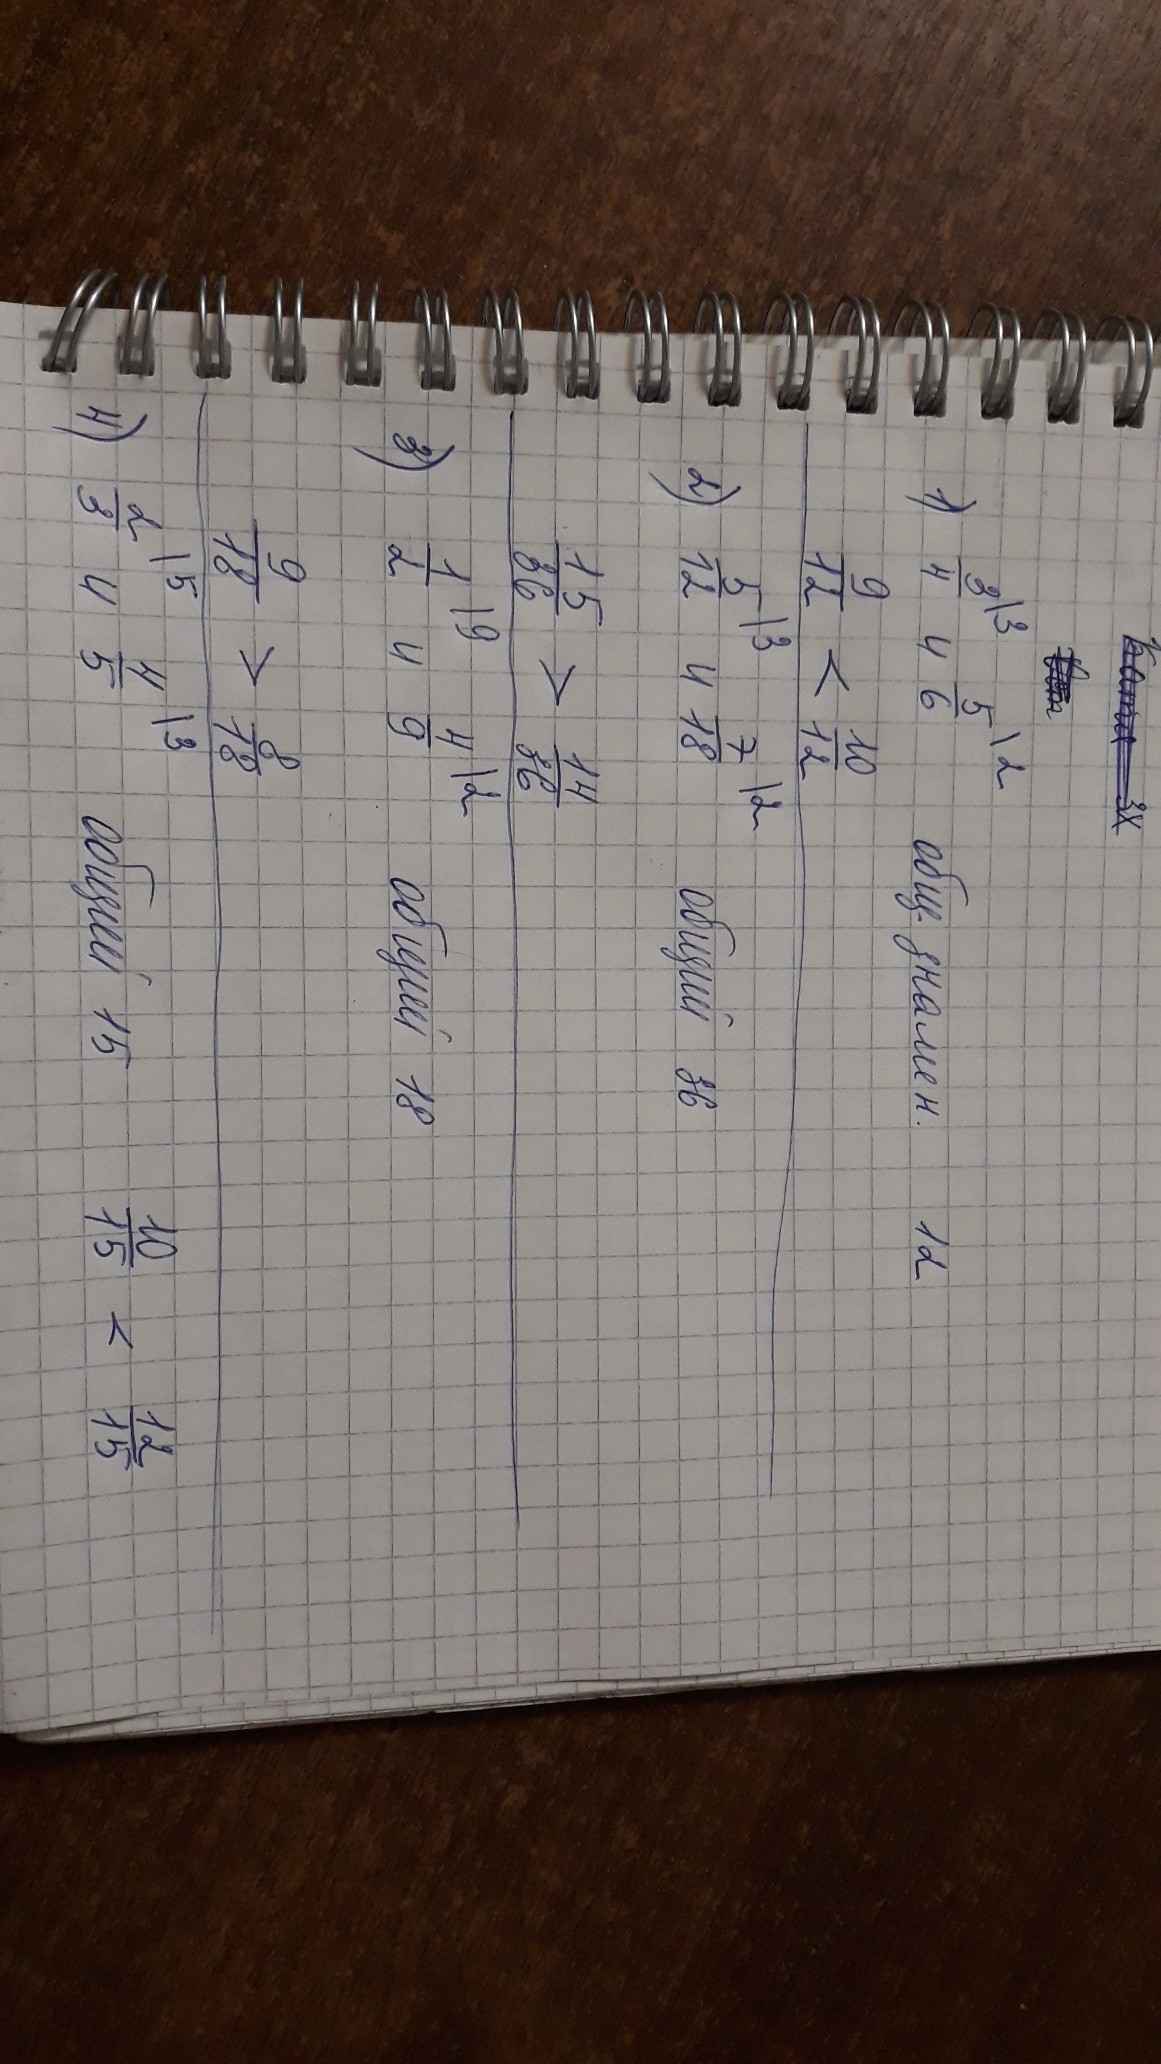 1) 3/4 \3 и 5/6 \2 общ. знамен. 12
9/12 < 10/12
2) 5/12 \3 и 7/18 \2 общий 36
15/36 > 14/36
3) 1/2 \9 и 4/9 \2 общий 18
9/18 > 8/18
4) 2/3 \5 и 4/5 \3 общий 15 10/15 < 12/15